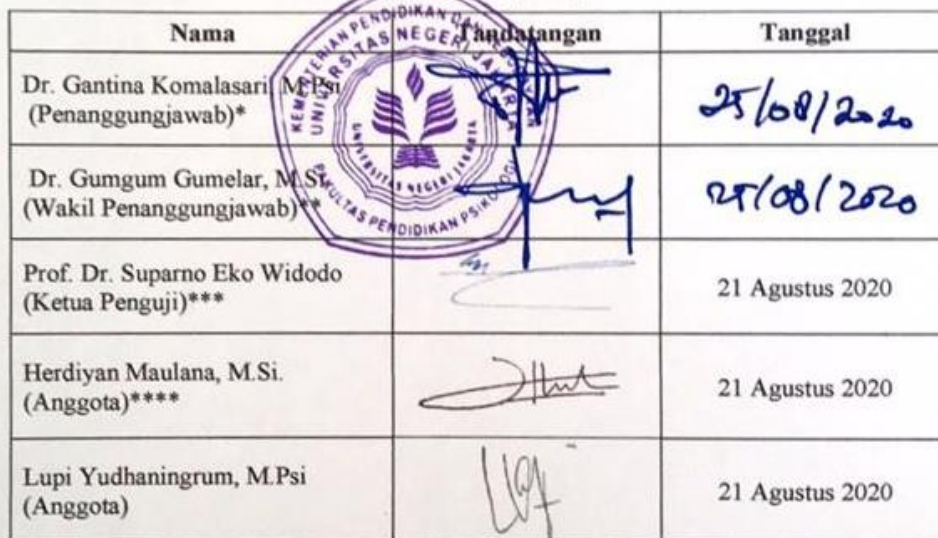 Nama Tandatangan Tanggal
Dr. Gantina Komalasari, M.Psi
(Penanggungjawab)*
25/08/2020
Dr. Gumgum Gumelar, M.Si
(Wakil Penanggungjawab)**
25/08/2020
Prof. Dr. Suparno Eko Widodo
(Ketua Penguji)***
21 Agustus 2020
Herdiyan Maulana, M.Si.
(Anggota)****
21 Agustus 2020
Lupi Yudhaningrum, M.Psi
(Anggota)
21 Agustus 2020
KEMENTERIAN PENDIDIKAN DAN
UNIVERSITAS NEGERI JAKARTA
UNIVERSITAS NEGERI JAKARTA
FAKULTAS PENDIDIKAN PSIKOLOGI